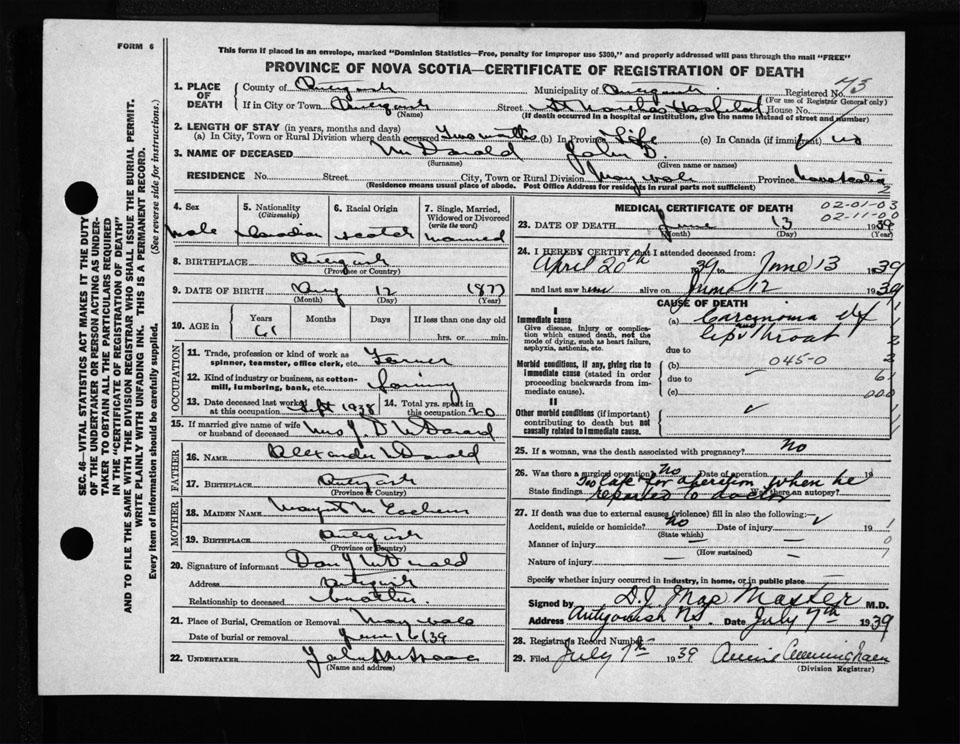 FORM 6
This form if placed in an envelope, marked "Dominion Statistics—Free, penalty for improper use $300," and properly addressed will pass through the mail "FREE"
PROVINCE OF NOVA SCOTIA—CERTIFICATE OF REGISTRATION OF DEATH
SEC. 46—VITAL STATISTICS ACT MAKES IT THE DUTY
OF THE UNDERTAKER OR PERSON ACTING AS UNDER-
TAKER TO OBTAIN ALL THE PARTICULARS REQUIRED
IN THE "CERTIFICATE OF REGISTRATION OF DEATH"
AND TO FILE THE SAME WITH THE DIVISION REGISTRAR WHO SHALL ISSUE THE BURIAL PERMIT.
WRITE PLAINLY WITH UNFADING INK. THIS IS A PERMANENT RECORD.
Every item of Information should be carefully supplied. (See reverse side for instructions.)
1. PLACE OF DEATH County of Antigonish Municipality of Antigonish Registered No. 73
(For use of Registrar General only)
If in City or Town Antigonish Street St Marthas Hospital House No.
(Name) (If death occurred in a hospital or institution, give the name instead of street and number)
2. LENGTH OF STAY (in years, months and days)
(a) In City, Town or Rural Division where death occurred Two months (b) In Province Life (c) In Canada (if immigrant) no
3. NAME OF DECEASED McDonald John D.
(Surname) (Given name or names)
RESIDENCE No. Street City, Town or Rural Division Province Nova Scotia
(Residence means usual place of abode. Post Office Address for residents in rural parts not sufficient) 2
4. Sex male
5. Nationality (Citizenship) Canadian
6. Racial Origin Scotch
7. Single, Married, Widowed or Divorced (write the word) married
8. BIRTHPLACE Antigonish
(Province or Country)
9. DATE OF BIRTH Aug 12 1877
(Month) (Day) (Year)
10. AGE in Years Months Days If less than one day old
61 hrs. or min.
OCCUPATION
11. Trade, profession or kind of work as spinner, teamster, office clerk, etc. Farmer
12. Kind of industry or business, as cotton-mill, lumbering, bank, etc. Farming
13. Date deceased last worked at this occupation Sept 1938 14. Total yrs. spent in this occupation 20
15. If married give name of wife or husband of deceased Mrs J. D. McDonald
FATHER
16. NAME Alexander McDonald
17. BIRTHPLACE Antigonish
(Province or Country)
MOTHER
18. MAIDEN NAME
19. BIRTHPLACE Antigonish
(Province or Country)
20. Signature of informant Dan J McDonald
Address Antigonish
Relationship to deceased
21. Place of Burial, Cremation or Removal
Date of burial or removal June 16/39
22. UNDERTAKER John McIsaac
(Name and address)
MEDICAL CERTIFICATE OF DEATH 02-01-03
02-11-00
23. DATE OF DEATH June 13 1939
(Month) (Day) (Year)
24. I HEREBY CERTIFY that I attended deceased from:
April 20th 1939 to June 13 1939
and last saw him alive on June 12 1939
CAUSE OF DEATH
I
Immediate cause
Give disease, injury or complication which caused death, not the mode of dying, such as heart failure, asphyxia, asthenia, etc.
(a) Carcinoma of
lip and throat
due to
Morbid conditions, if any, giving rise to immediate cause (stated in order proceeding backwards from immediate cause).
(b) 045-0
due to
(c)
II
Other morbid conditions (if important) contributing to death but not causally related to immediate cause.
25. If a woman, was the death associated with pregnancy? No
26. Was there a surgical operation? No Date of operation 19
State findings Too late for operation when he
reported to doctor Was there an autopsy?
27. If death was due to external causes (violence) fill in also the following:—
Accident, suicide or homicide? No Date of injury 19
(State which)
Manner of injury
(How sustained)
Nature of injury
Specify whether injury occurred in Industry, in home, or in public place
Signed by D. J. MacMaster M.D.
Address Antigonish N.S. Date July 7th 1939
28. Registrar's Record Number
29. Filed July 7th 1939 Annie Cunningham
(Division Registrar)